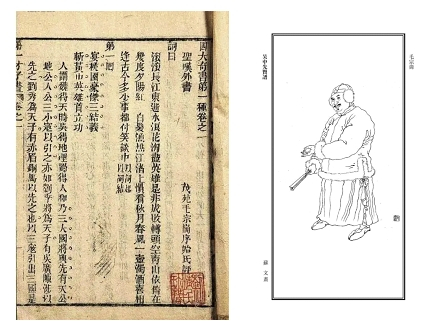 四大奇書第一種卷之一
聖嘆外書
茂苑毛宗崗序始氏評
詞曰
滾滾長江東逝水浪花淘盡英雄是非成敗轉頭空青山依舊在
幾度夕陽紅 白髮漁樵江渚上慣看秋月春風一壺濁酒喜相
逢古今多少事都付笑談中
第一回
宴桃園豪傑三結義
斬黃巾英雄首立功
人謂魏得天時吳得地理蜀得人和乃三大國將興先有天公
地公人公三小寇以引之亦如劉季將為天子有吳廣陳涉以
先之劉秀為天子有赤眉銅馬以先之也以三寇引出三國是
毛宗崗